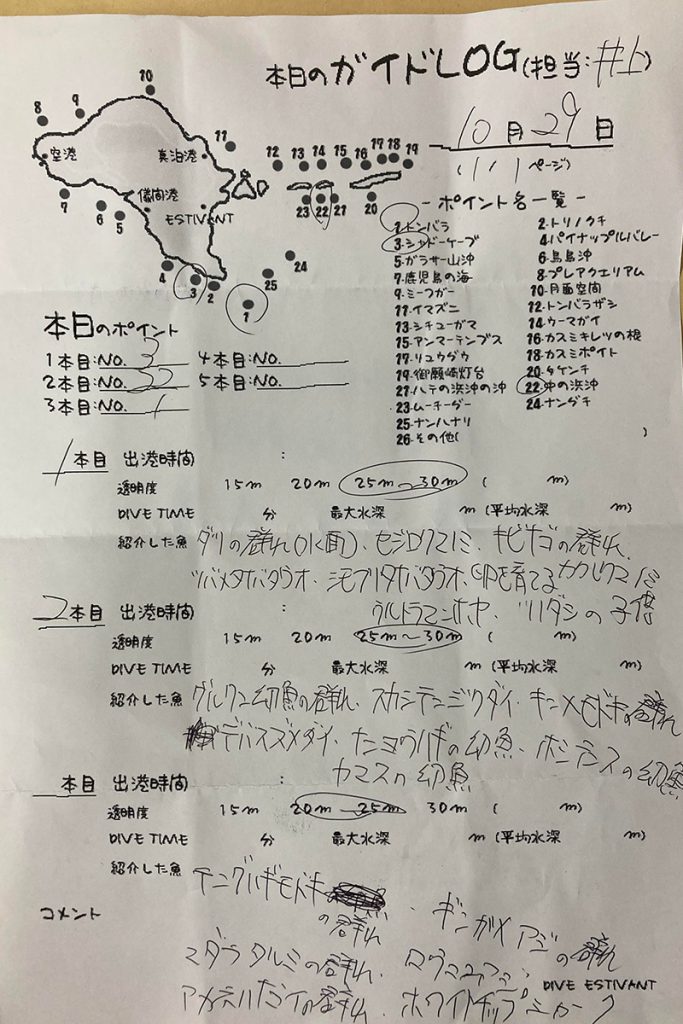 本日のガイドLOG(担当:井上)
10月29日
(1/1ページ)
10
8
9
空港
真泊港
11
12 13 14 15 16 17 18 19
23 22 21
20
儀間港
7
6
5
ESTIVANT
24
25
4
3
2
1
-ポイント名一覧-
1.トンバラ 2.トリノクチ
3.シャドーケーブ 4.パイナップルバレー
5.ガラサー山沖 6.鳥島沖
7.鹿児島の海 8.プレアクエリアム
9.ミーフガー 10.月面空間
11.イマズニ 12.トンバラザシ
13.シチューガマ 14.ウーマガイ
15.アンマーテンブス 16.カスミキレツの根
17.リュウグウ 18.カスミポイト
19.御願崎灯台 20.タケンチ
21.ハテの浜沖の沖 22.中の浜沖
23.ムーチーグー 24.ナングチ
25.ナンハナリ
26.その他( )
本日のポイント
1本目:NO. 3 4本目:NO.
2本目:NO. 22 5本目:NO.
3本目:NO. 1
1本目 出港時間 :
透明度 15m 20m 25m～30m ( m)
DIVE TIME 分 最大水深 m (平均水深 m)
紹介した魚 グリの群れ(水面)、セジロクマノミ、キビナゴの群れ、
ツバメタオバダウオ、シモフリタオバダウオ、卵を育てるカクレクマノミ
ウルトラマンホヤ、ツノダシの子供
2本目 出港時間 :
透明度 15m 20m 25m～30m ( m)
DIVE TIME 分 最大水深 m (平均水深 m)
紹介した魚 グルクン幼魚の群れ、スカシテンジクダイ、キンメモドキの群れ
デバスズメダイ、ナンヨウハギの幼魚、ホシテンスの幼魚
カマスの幼魚
本目 出港時間 :
透明度 15m 20m～25m 30m ( m)
DIVE TIME 分 最大水深 m (平均水深 m)
紹介した魚 テングハギモドキの群れ、ギンガメアジの群れ
コメント
マダラタルミの群れ、ロウニンアジ、
DIVE ESTIVANT
の群れ、ホワイトチップシャーク